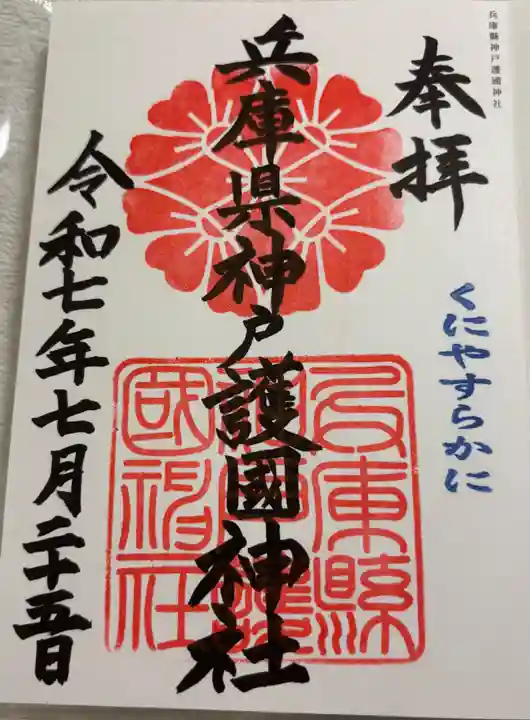 兵庫縣神戸護國神社
奉拝
くにやすらかに
兵庫県神戸護國神社
兵庫縣
神戸護
國神社
令和七年七月二十五日